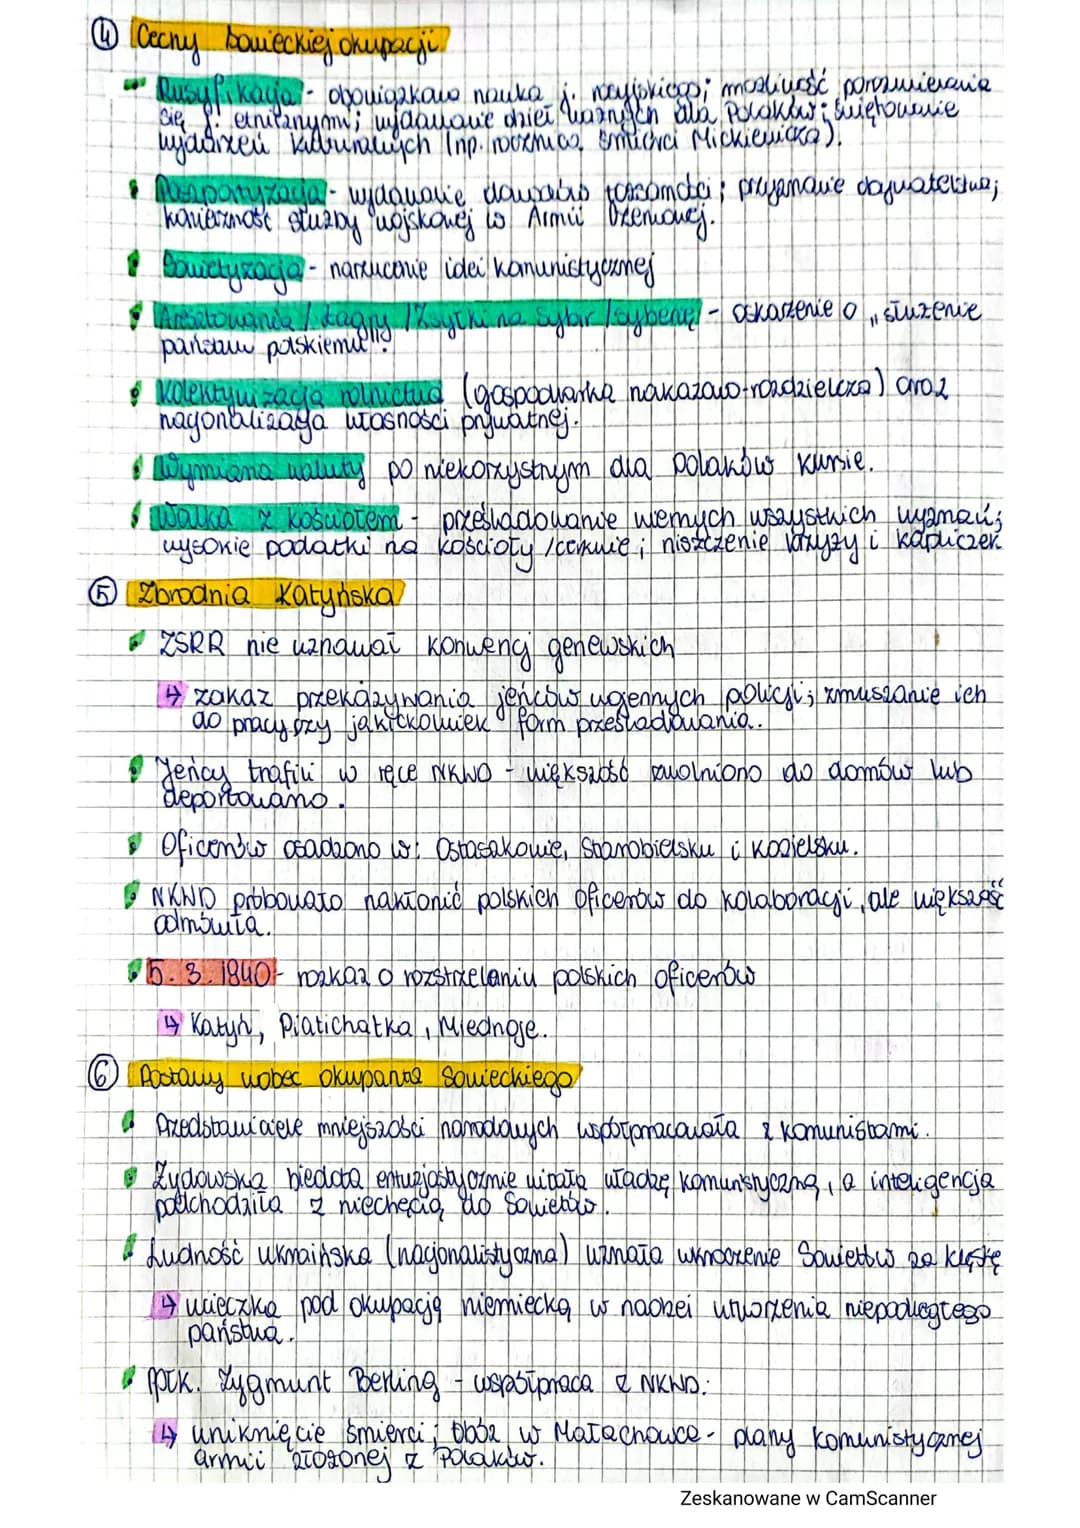 ④ Cechy sowieckiej okupacji
Rusyfikacja - obowiązkowa nauka j. rosyjskiego; możliwość porozumienia
się j. etnicznymi; wydawanie dzieł ważnych dla Polaków; świętowanie
wydarzeń kulturalnych (np. rocznica śmierci Mickiewicza).
Paszportyzacja - wydawanie dowodów tożsamości; przyznanie obywatelstwa;
konieczność służby wojskowej w Armii Czerwonej.
Sowietyzacja - narzucenie idei komunistycznej
Aresztowania / Łagry / Zsyłki na Sybir /syberię/ - oskarżenie o „służenie
państwu polskiemu".
Kolektywizacja rolnictwa (gospodarka nakazowo-rozdzielcza) oraz
nacjonalizacja własności prywatnej.
Wymiana waluty po niekorzystnym dla Polaków kursie.
Walka z kościołem - prześladowanie wiernych wszystkich wyznań;
wysokie podatki na kościoły /cerkwie; niszczenie krzyży i kapliczek
⑤ Zbrodnia Katyńska
ZSRR nie uznawał konwencj genewskich
↳ zakaz przekazywania jeńców wojennych policji; zmuszanie ich
do pracy czy jakichkolwiek form prześladowania.
Jeńcy trafili w ręce NKWD - większość zwolniono do domów lub
deportowano.
Oficerów osadzono w: Ostaszkowie, Starobielsku i Kozielsku.
NKWD próbowało nakłonić polskich oficerów do kolaboracji, ale większość
odmówiła.
5. 3. 1840 - rozkaz o rozstrzelaniu polskich oficerów
↳ Katyń, Piatichatka, Miednoje.
⑥ Postawy wobec okupanta Sowieckiego
Przedstawiciele mniejszości narodowych współpracowała z komunistami.
Żydowska biedota entuzjastycznie witała władzę komunistyczną, a inteligencja
podchodziła z niechęcią do Sowietów.
Ludność ukraińska (nacjonalistyczna) uznała wkroczenie Sowietów za klęskę
↳ ucieczka pod okupację niemiecką w nadziei utworzenia niepodległego
państwa.
ppłk. Zygmunt Berling - współpraca z NKWD:
↳ uniknięcie śmierci; Obóz w Małachowce - plany komunistycznej
armii złożonej z Polaków.
Zeskanowane w CamScanner